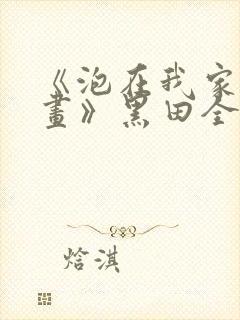 《泡在我家
畫》黑田全
焓淇